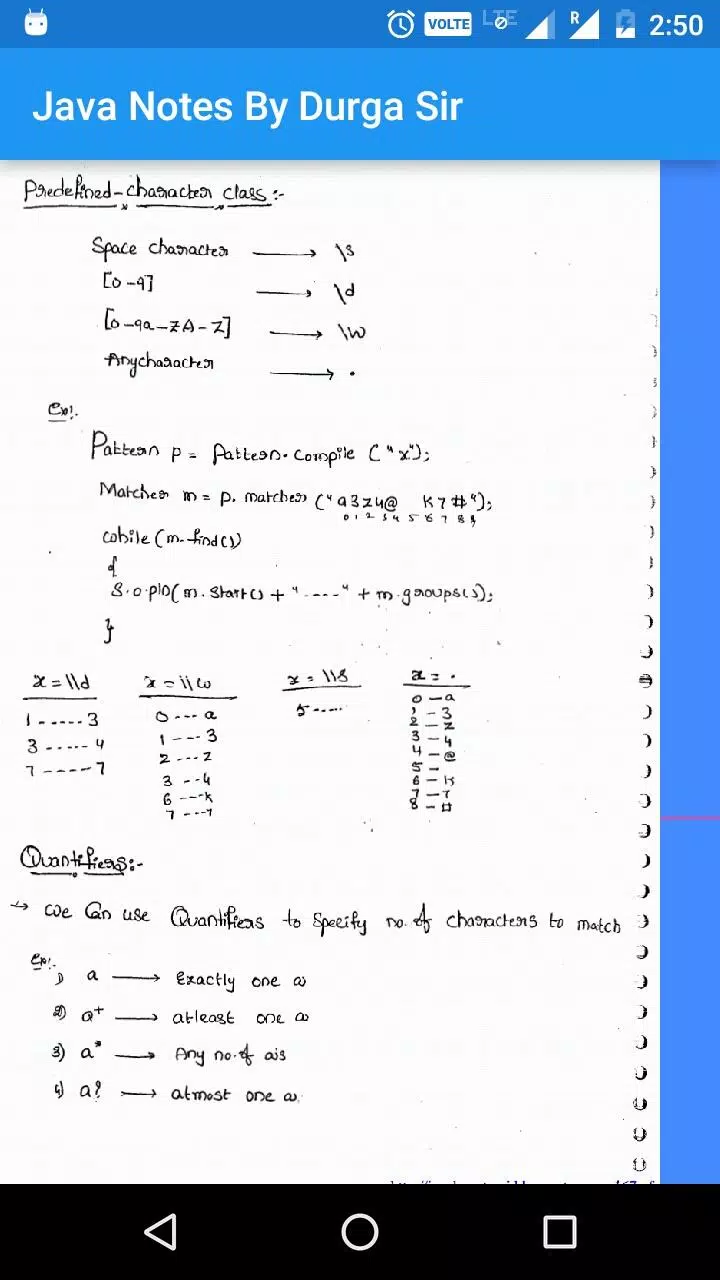 VOLTE LTE R 2:50
Java Notes By Durga Sir
Predefined-character class:-
Space character → \s
[0-9] → \d
[0-9a-zA-Z] → \w
Anycharacter → .
Ex:.
Pattern p = Pattern.compile ("x");
Matcher m = p. matcher ("a3z4@ K7#");
0 1 2 3 4 5 6 7 8
while (m.find())
{
S.o.pln(m.start() + "----" + m.group());
}
x = \\d x = \\w x = \\s x = .
1-----3 0---a 5---- 0-a
3-----4 1---3 1-3
7-----7 2---z 2-z
3---4 3-4
6---K 4-@
7---7 5-
6-K
7-7
8-#
Quantifiers:-
→ we Can use Quantifiers to Specify no. of characters to match
Ex:.
1) a → Exactly one a
2) a+ → atleast one a
3) a* → Any no.of a's
4) a? → atmost one a.